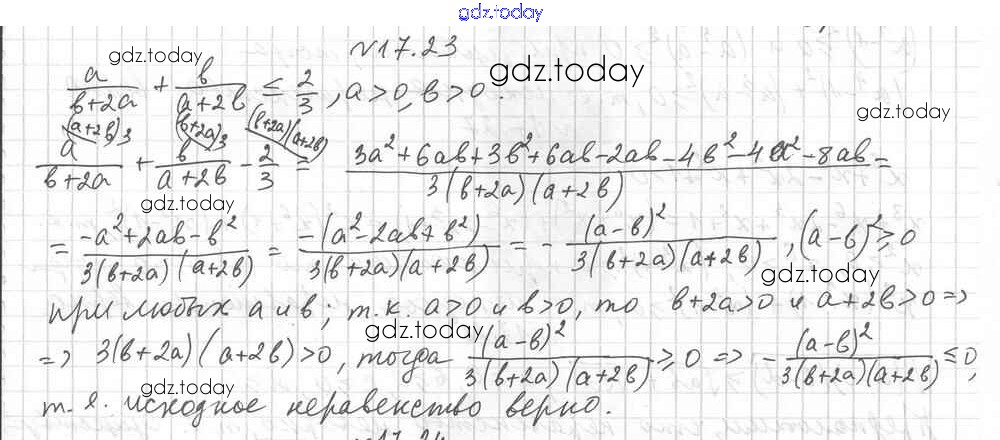 gdz.today
№17.23
gdz.today
gdz.today
a/(b+2a) + b/(a+2b) ≤ 2/3, a>0, b>0.
gdz.today
a^{(a+2b)3}/(b+2a) + b^{(b+2a)3}/(a+2b) - 2^{(b+2a)(a+2b)}/3 = (3a²+6ab+3b²+6ab-2ab-4b²-4a²-8ab)/(3(b+2a)(a+2b)) =
gdz.today
= (-a²+2ab-b²)/(3(b+2a)(a+2b)) = (-(a²-2ab+b²))/(3(b+2a)(a+2b)) = - (a-b)²/(3(b+2a)(a+2b)), (a-b)²≥0
gdz.today
при любых a и b; т.к. a>0 и b>0, то b+2a>0 и a+2b>0 =>
gdz.today
=> 3(b+2a)(a+2b)>0, тогда (a-b)²/(3(b+2a)(a+2b)) ≥ 0 => - (a-b)²/(3(b+2a)(a+2b)) ≤0,
gdz.today
т.е. исходное неравенство верно.
№17.24